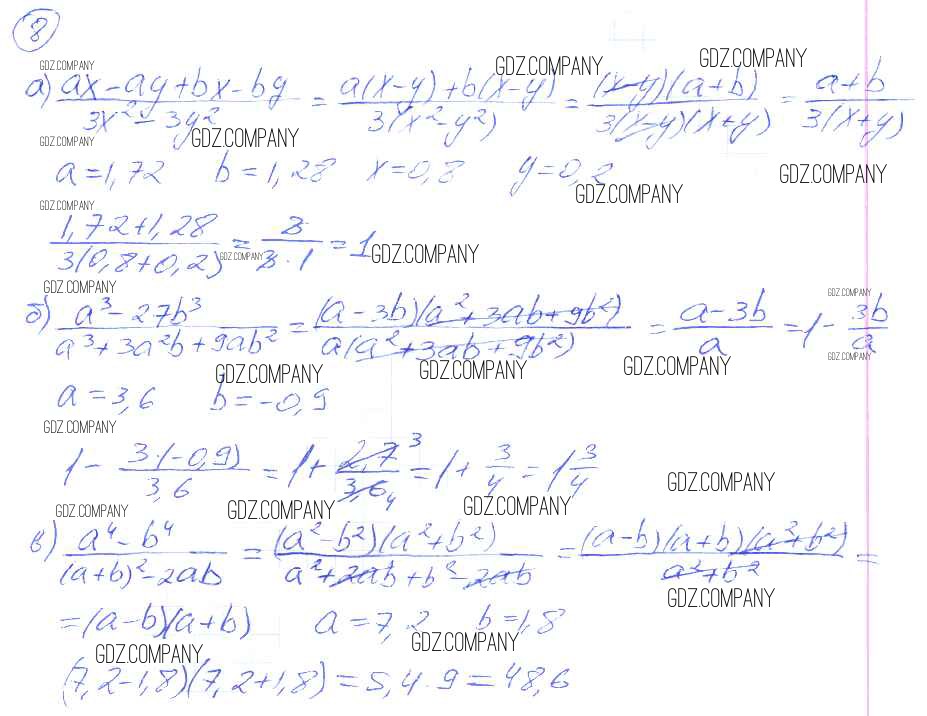 8
GDZ.COMPANY GDZ.COMPANY GDZ.COMPANY
а) (ax-ay+bx-by)/(3x²-3y²) = (a(x-y)+b(x-y))/(3(x²-y²)) = ((x-y)(a+b))/(3(x-y)(x+y)) = (a+b)/(3(x+y))
GDZ.COMPANY GDZ.COMPANY
a=1,72 b=1,28 x=0,8 y=0,2
GDZ.COMPANY GDZ.COMPANY
GDZ.COMPANY
(1,72+1,28)/(3(0,8+0,2)) = 3/(3·1) = 1
GDZ.COMPANY GDZ.COMPANY
GDZ.COMPANY GDZ.COMPANY
б) (a³-27b³)/(a³+3a²b+9ab²) = ((a-3b)(a²+3ab+9b²))/(a(a²+3ab+9b²)) = (a-3b)/a = 1-3b/a
GDZ.COMPANY GDZ.COMPANY GDZ.COMPANY GDZ.COMPANY
a=3,6 b=-0,9
GDZ.COMPANY
1-(3·(-0,9))/3,6 = 1+2,7 3/3,6 4 = 1+3/4 = 1 3/4
GDZ.COMPANY
GDZ.COMPANY GDZ.COMPANY GDZ.COMPANY
в) (a⁴-b⁴)/((a+b)²-2ab) = ((a²-b²)(a²+b²))/(a²+2ab+b²-2ab) = ((a-b)(a+b)(a²+b²))/(a²+b²) =
GDZ.COMPANY
=(a-b)(a+b) a=7,2 b=1,8
GDZ.COMPANY GDZ.COMPANY
(7,2-1,8)(7,2+1,8)=5,4·9=48,6